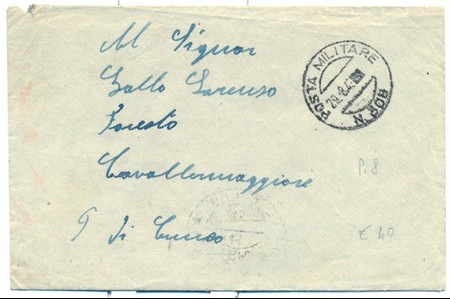 Al Signor
Gallo Lorenzo
Foresto
Cavallermaggiore
P di Cuneo
POSTA MILITARE
29.8.4
N. 208
P.8
€ 40